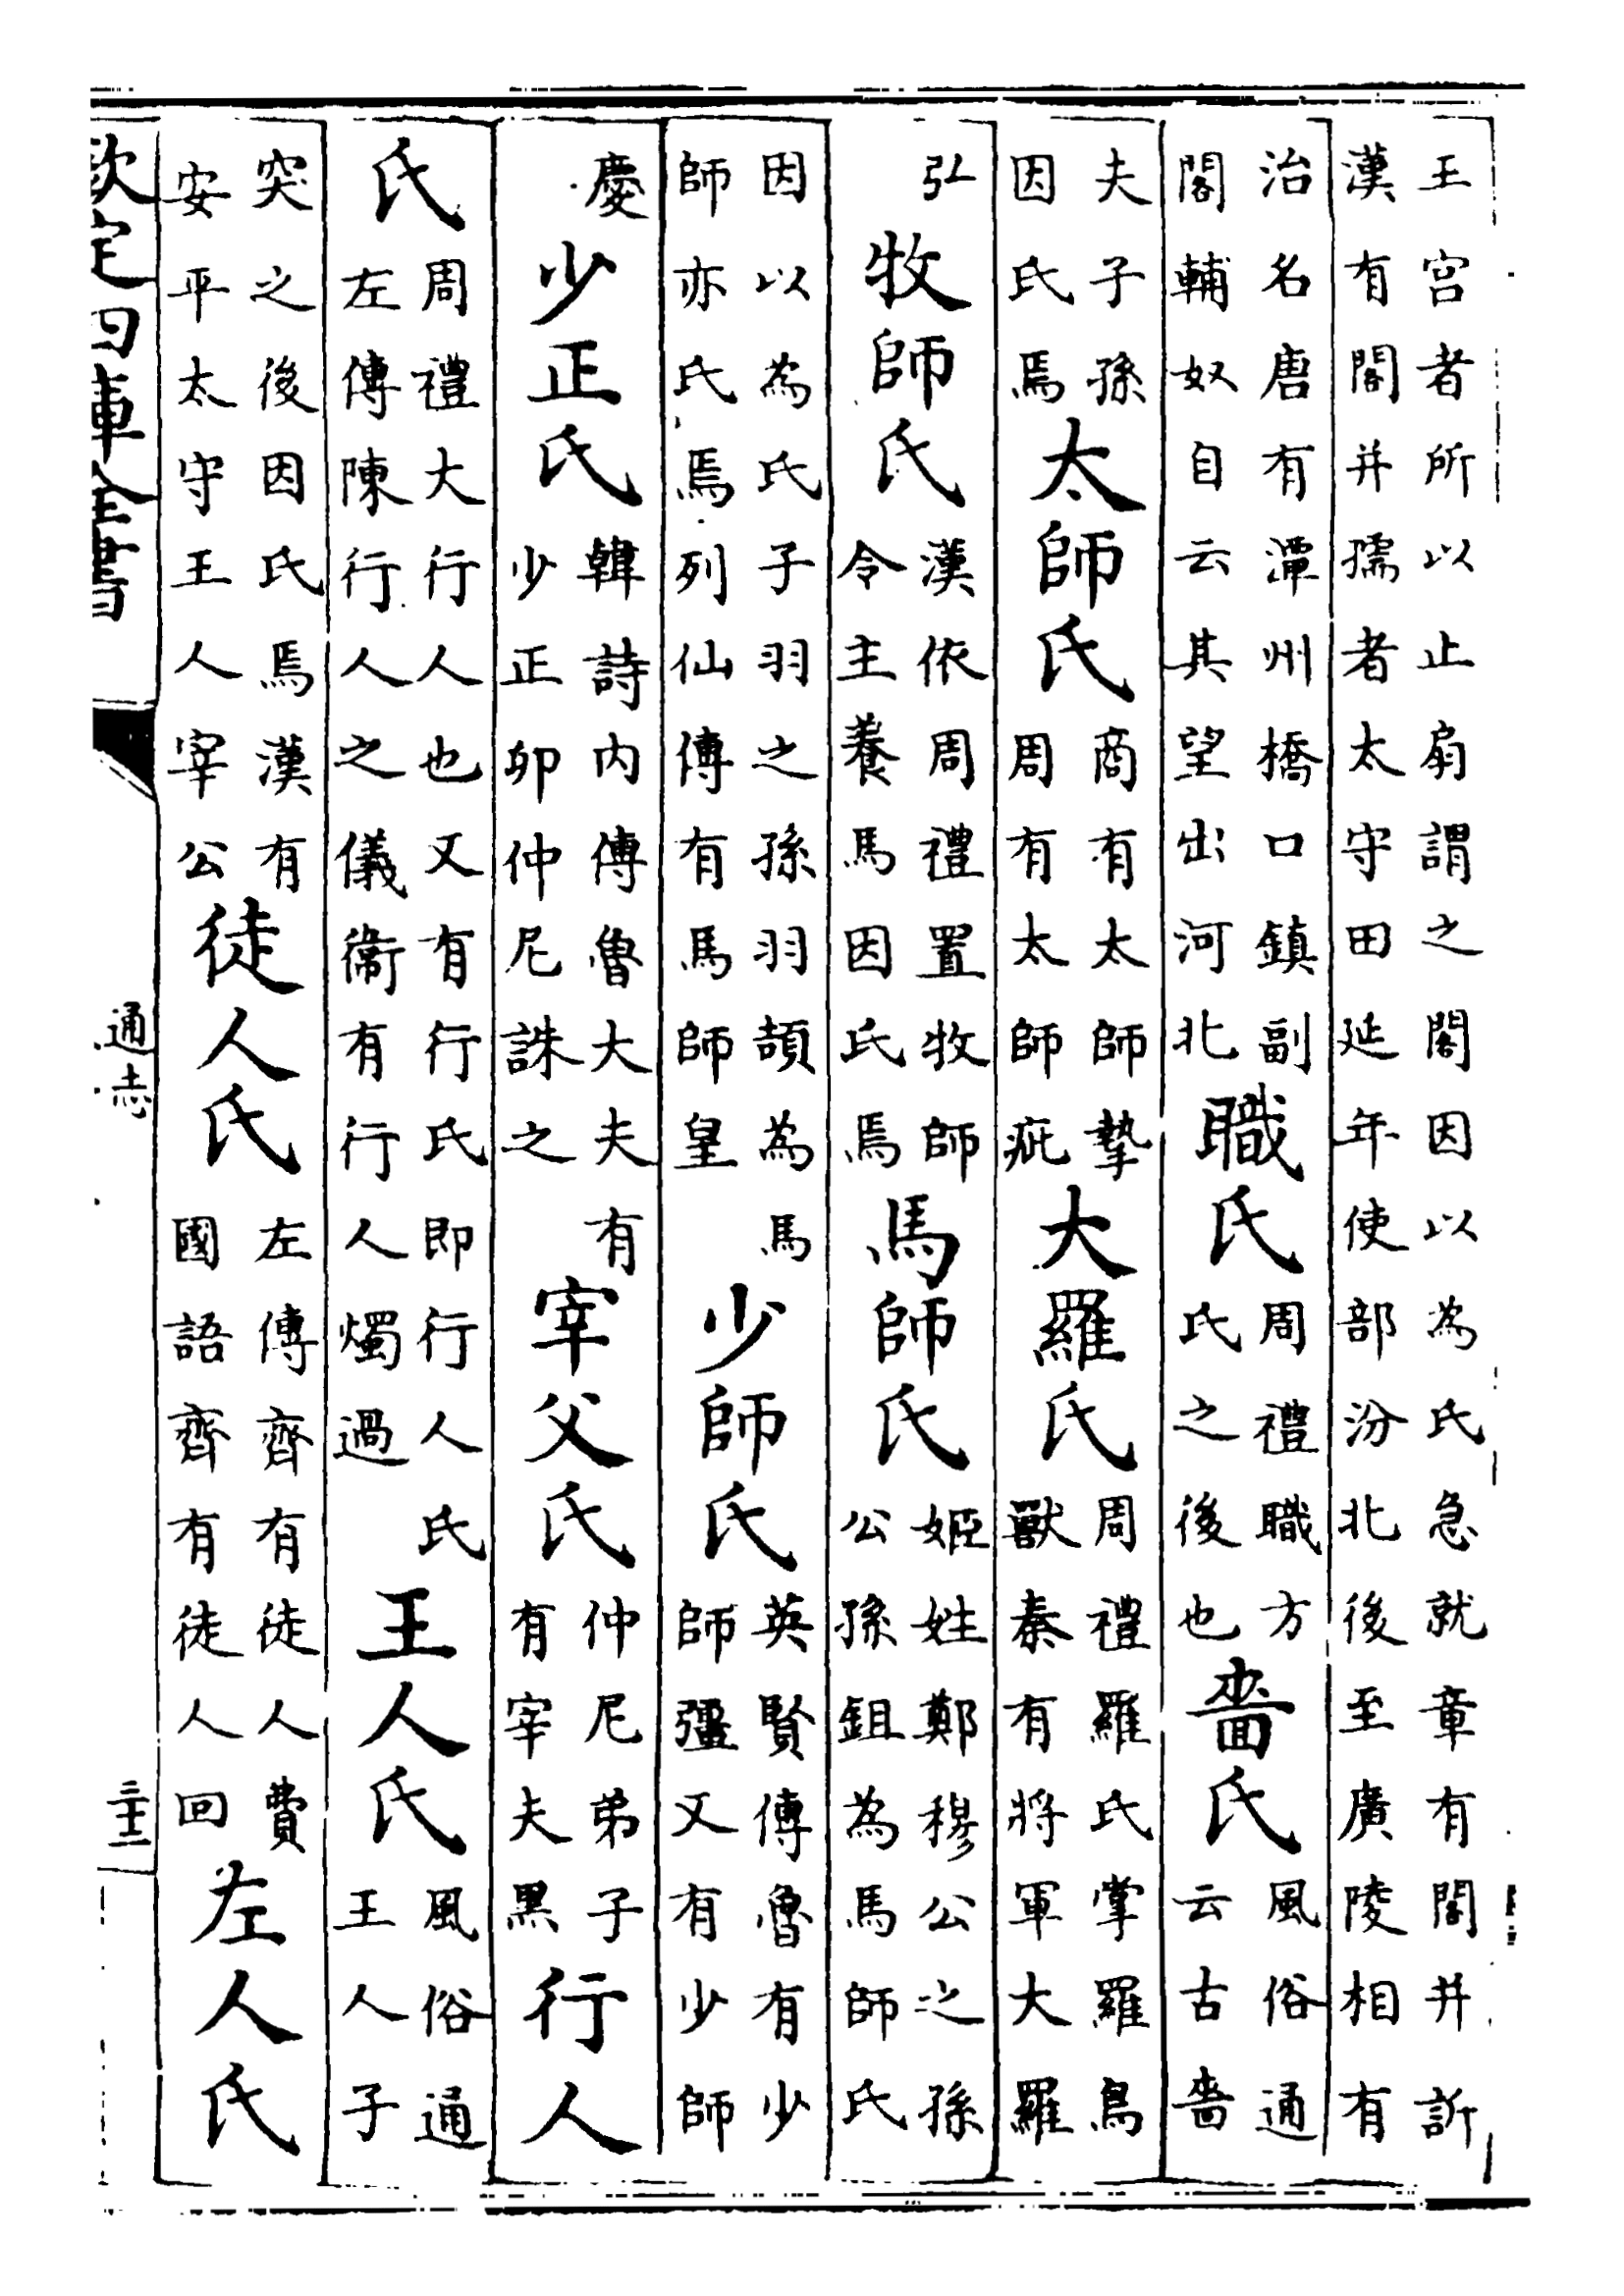 王宫者所以止扇謂之閤因以為氏急就章有閤并訢
漢有閤并孺者太守田延年使部汾北後至廣陵相有
治名唐有潭州橋口鎮副
閤輔奴自云其望出河北
職氏
周禮職方
氏之後也
嗇氏
風俗通
云古嗇
夫子孫
因氏焉
太師氏
商有太師摯
周有太師疵
大羅氏
周禮羅氏掌羅鳥
獸秦有將軍大羅
弘
牧師氏
漢依周禮置牧師
令主養馬因氏焉
馬師氏
姬姓鄭穆公之孫
公孫鉏為馬師氏
因以為氏子羽之孫羽頡為馬
師亦氏焉列仙傳有馬師皇
少師氏
英賢傳魯有少
師彊又有少師
慶
少正氏
韓詩内傳魯大夫有
少正卯仲尼誅之
宰父氏
仲尼弟子
有宰夫黑
行人
氏
周禮大行人也又有行氏即行人氏
左傳陳行人之儀衛有行人燭過
王人氏
風俗通
王人子
突之後因氏焉漢有
安平太守王人宰公
徒人氏
左傳齊有徒人費
國語齊有徒人回
左人氏
欽定四庫全書
通志